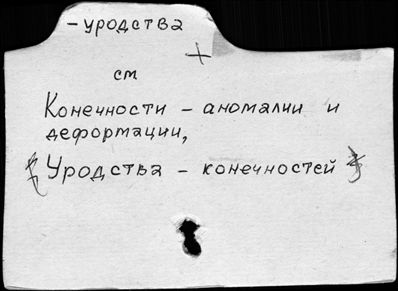 -уродства
+
см
Конечности - аномалии и
дефортации,
{Уродства - конечностей}